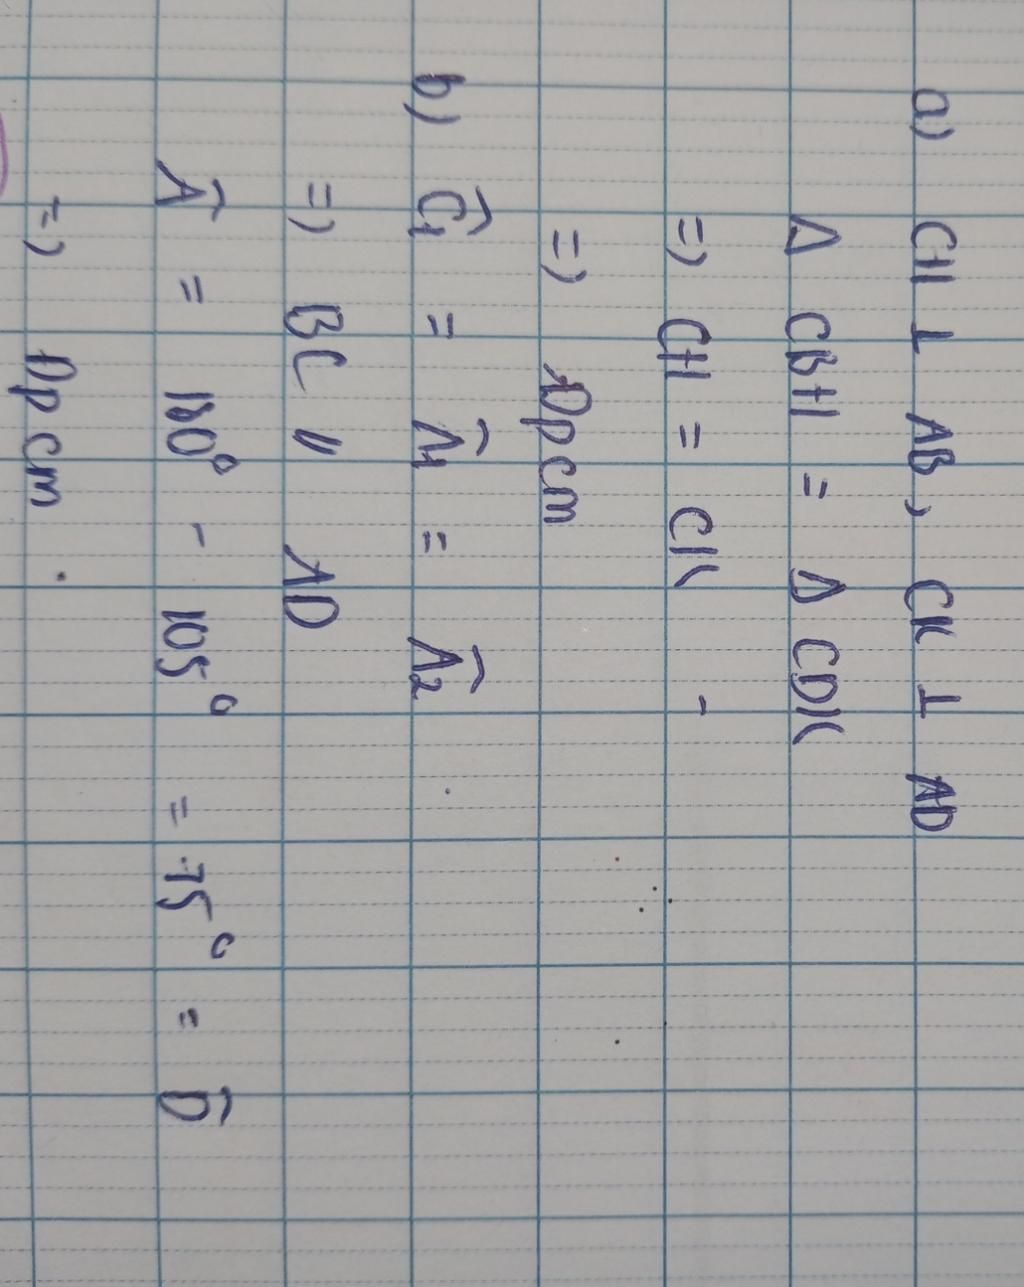 a) CH ⊥ AB, CK ⊥ AD
Δ CBH = Δ CDK
=) CH = CK
=) Đpcm
b) Ĉ1 = Â1 = Â2
=) BC // AD
Â = 180° - 105° = 75° = D̂
=) Đpcm.